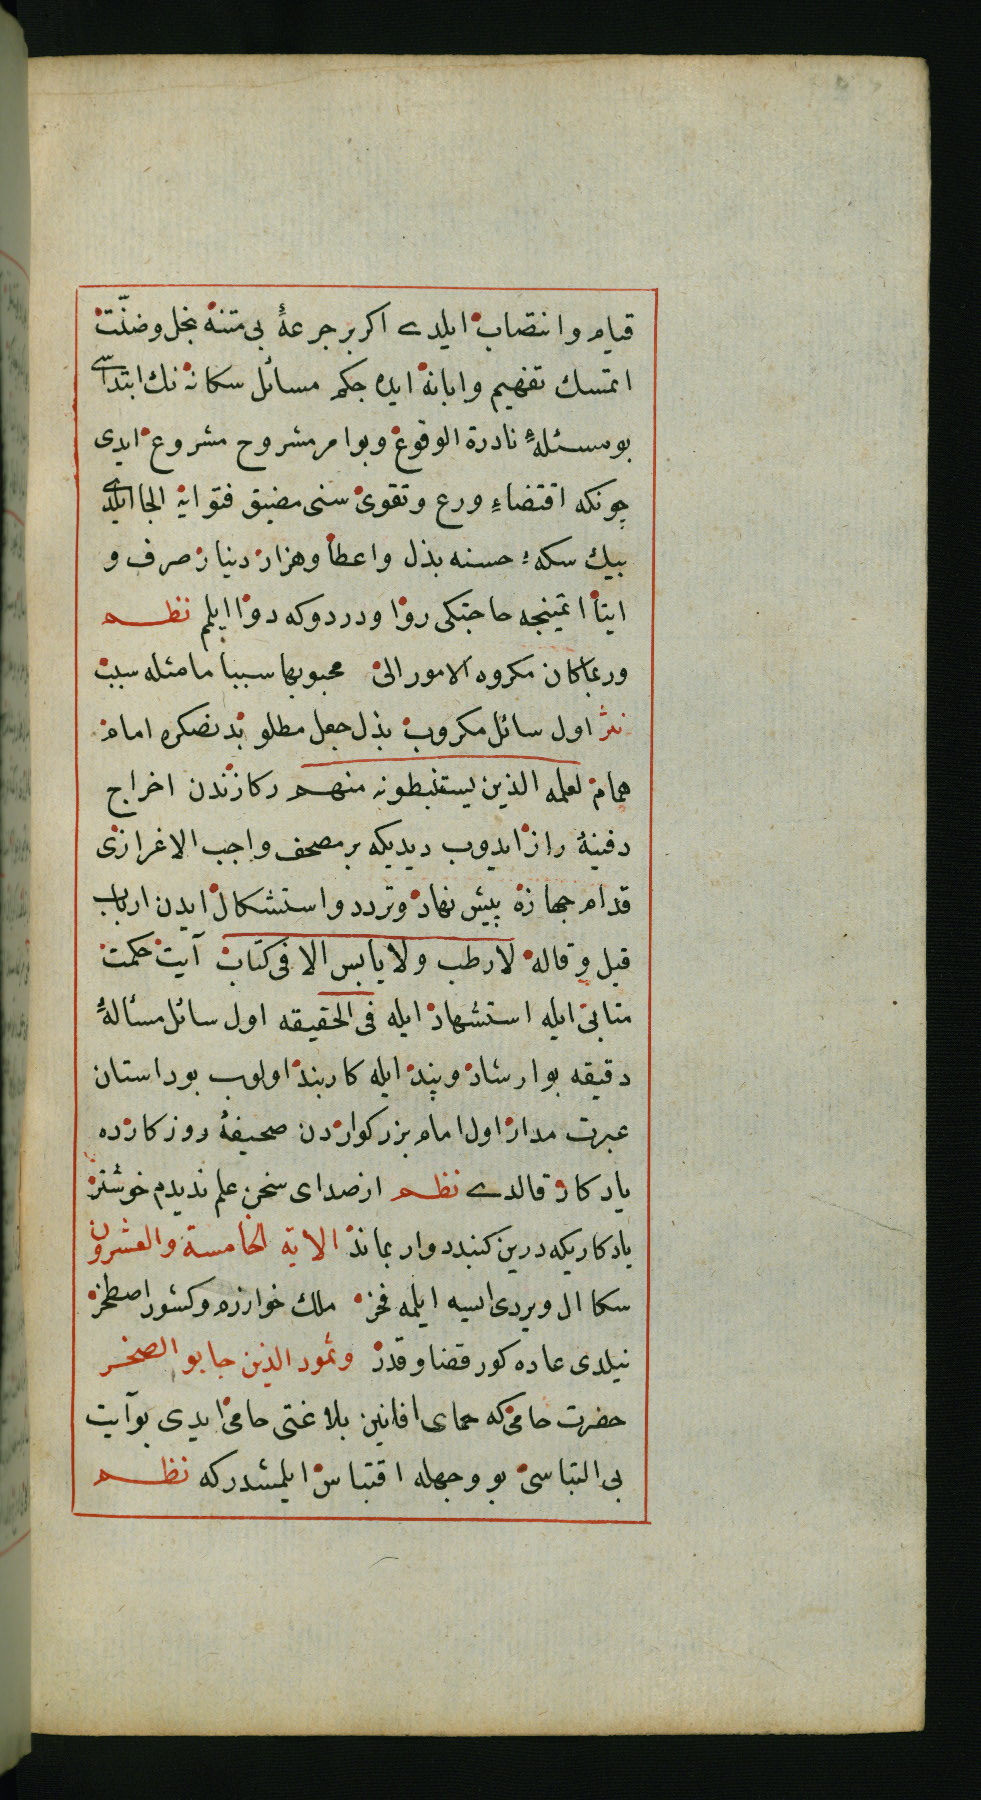 قيام وانتصاب ايلدے اكر بر جرعهٔ بی متنه بخل وضنّت
ايتمسك تفهيم وابانه ايده جكم مسائل سكانه نك ابتداسی
بو مسئلهٔ نادرة الوقوع وبو امر مشروح مشروع ايدی
چونكه اقتضاءِ ورع وتقوی سنی مضيق فتوايه الجا ايلدی
بيك سكهٔ حسنه بذل واعطا وهزار دينار صرف و
ايتا ايتمينجه حاجتكی روا ودردوكه دوا ايلم نظم
وربما كان مكروه الامور الی محبوبها سببا ما مثله سبب
نثر اول سائل مكروب بذل جعل مطلوبدنصكره امام
همام لعلمه الذين يستنبطونه منهم ركازندن اخراج
دفينهٔ راز ايدوب ديديكه بر مصحف واجب الاعزازی
قدام جهازه پيش نهاد وتردد واستشكال ايدن ارباب
قيل وقاله لا رطب ولا يابس الا فی كتاب آيت حكمت
متانتی ايله استشهاد ايله فی الحقيقه اول سائل مسألهٔ
دقيقه بو ارشاد وپند ايله كاربند اولوب بو داستان
عبرت مدار اول امام بزركواردن صحيفهٔ روزكارده
يادكار قالدے نظم از صدای سخن علم نديدم خوشتر
يادكاريكه درين كنبد دوار بماند الاية الخامسة والعشرون
سكا ال ويردی ايسه ايلمه فخر ملك خوارزم وكشور اصطخر
نيلدی عاده كور قضا وقدر وثمود الذين جابوا الصخر
حضرت حامی كه حمای افانين بلاغتی حامی ايدی بو آيت
بی التباسی بو وجهله اقتباس ايلمشدركه نظم